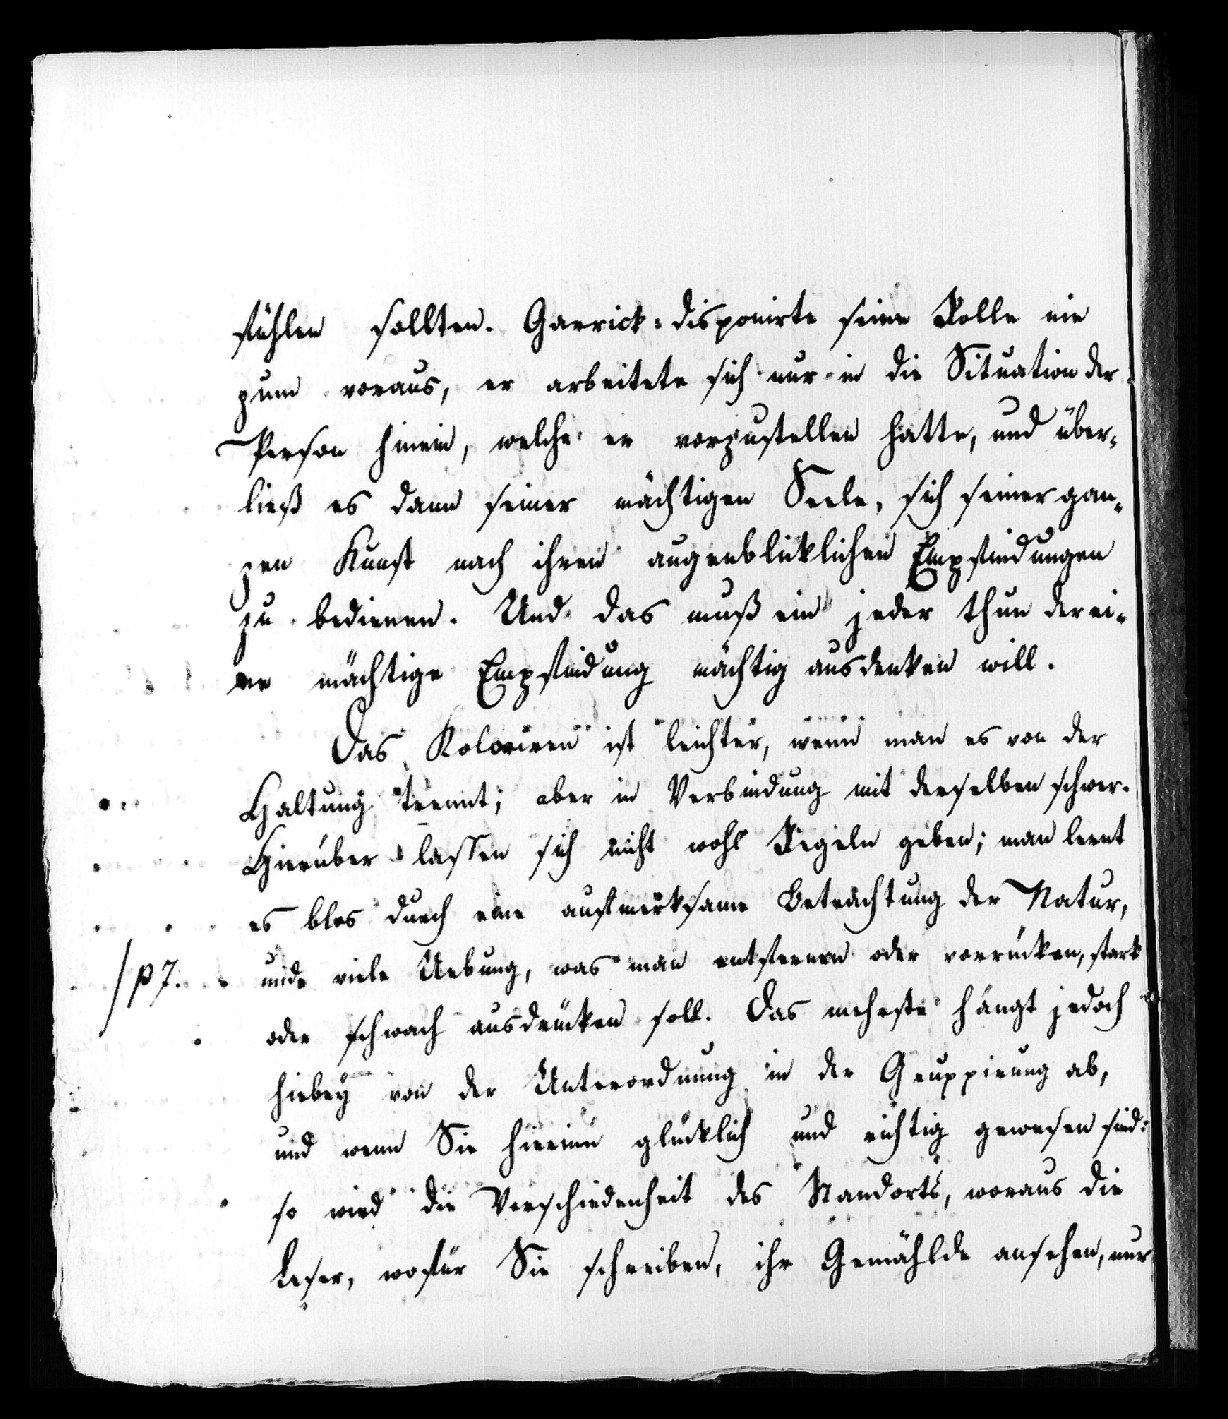 fühlen sollten. Garrick disponirte seine Rolle nie
zum voraus, er arbeitete sich nur in die Situation der
Person hinein, welche er vorzustellen hatte, und über-
ließ es dann seiner mächtigen Seele, sich seiner gan-
zen Kunst nach ihren augenblicklichen Empfindungen
zu bedienen. Und das muß ein jeder thun der ei-
ne mächtige Empfindung mächtig ausdenken will.
Das Koloriren ist leichter, wenn man es von der
Haltung trennt; aber in Verbindung mit derselben schwer.
Hierüber lassen sich nicht wohl Regeln geben; man lernt
es blos durch eine aufmerksame Betrachtung der Natur,
und viele Uebung, was man entfernen oder vorrücken, stark
/p 7.
oder schwach ausdrücken soll. Das meheste hängt jedoch
hiebey von der Unterordnung in der Gruppirung ab,
und wenn Sie hierinn glücklich und richtig gewesen sind:
so wird die Verschiedenheit des Standorts, woraus die
Leser, wofür Sie schreiben, ihr Gemählde ansehen, nur